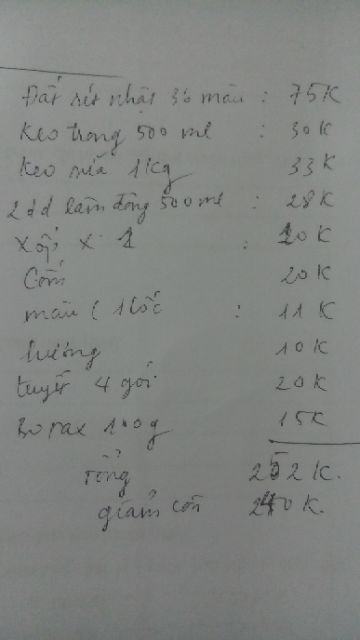 Đất sét nhật 36 màu : 75K
Keo trong 500 ml : 30K
Keo sữa 1Kg 33K
2 dd làm đông 500ml : 28K
Xốp X 1 : 10K
Cốm 20K
màu ( 1 lốc : 11K
hương 10K
tuyết 4 gói 20K
Borax 100g 15K
Tổng 252K.
giảm còn 240K.